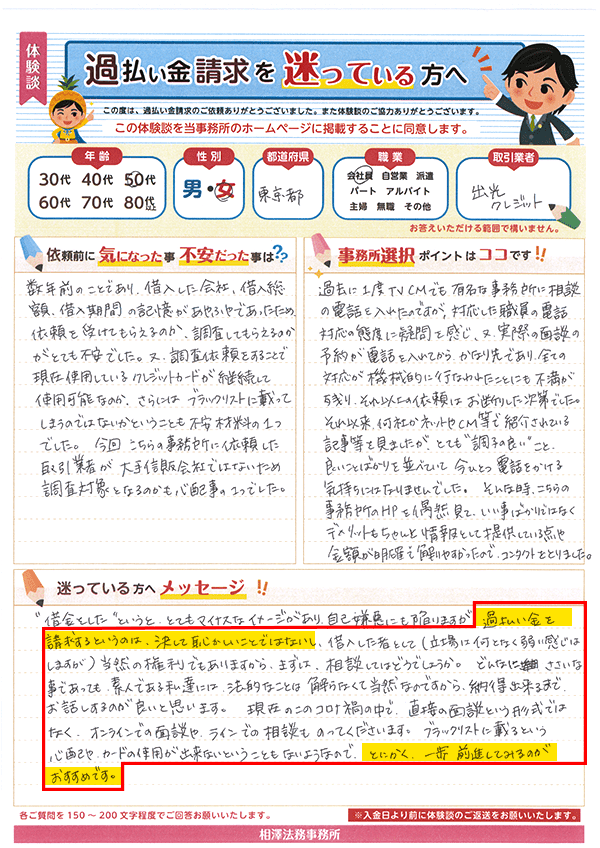 体験談
過払い金請求を迷っている方へ
この度は、過払い金請求のご依頼ありがとうございました。また体験談のご協力ありがとうございます。
この体験談を当事務所のホームページに掲載することに同意します。
年齢
30代 40代 50代
60代 70代 80代以上
性別
男・女
都道府県
東京都
職業
会社員 自営業 派遣
パート アルバイト
主婦 無職 その他
取引業者
出光
クレジット
お答えいただける範囲で構いません。
依頼前に気になった事 不安だった事は??
数年前のことであり、借入した会社、借入総
額、借入期間の記憶があやふやであったため
依頼を受けてもらえるのか、調査してもらえるのか
がとても不安でした。又、調査依頼をすることで
現在使用しているクレジットカードが継続して
使用可能なのか、さらにはブラックリストに載って
しまうのではないかということも不安材料の1つ
でした。今回こちらの事務所に依頼した
取引業者が大手信販会社ではないため
調査対象となるのかも心配事の1つでした。
事務所選択ポイントはココです!!
過去に1度TVCMでも有名な事務所に相談
の電話を入れたのですが、対応した職員の電話
対応の態度に疑問を感じ、又、実際の面談の
予約が電話を入れてから、かなり先であり、全ての
対応が機械的に行なわれたことにも不満が
残り、それ以上の依頼はお断りした次第でした。
それ以来、何社かネットやCM等で紹介されている
記事等を見ましたが、とても"調子の良い"こと、
良いことばかりを並べていて今ひとつ電話をかける
気持ちにはなりませんでした。そんな時、こちらの
事務所のHPを偶然見て、いい事ばかりではなく
デメリットもちゃんと情報として提供している点や
金額が明確で解りやすかったので、コンタクトをとりました。
迷っている方へメッセージ!!
"借金をした"というと、とてもマイナスなイメージがあり、自己嫌悪にも陥りますが、過払い金を
請求するというのは、決して恥かしいことではないし、借入した者として(立場は何となく弱い感じは
しますが)当然の権利でもありますから、まずは、相談してはどうでしょうか。どんなに ささいな
事であっても、素人である私達には、法的なことは解らなくて当然なのですから、納得出来るまで、
お話しするのが良いと思います。現在のこのコロナ禍の中で、直接の面談という形式では
なく、オンラインでの面談や、ラインでの相談ものってくださいます。ブラックリストに載るという
心配や、カードの使用が出来ないということもないようなので、とにかく、一歩前進してみるのが
おすすめです。
各ご質問を150~200文字程度でご回答お願いいたします。
※入金日より前に体験談のご返送をお願いいたします。
相澤法務事務所